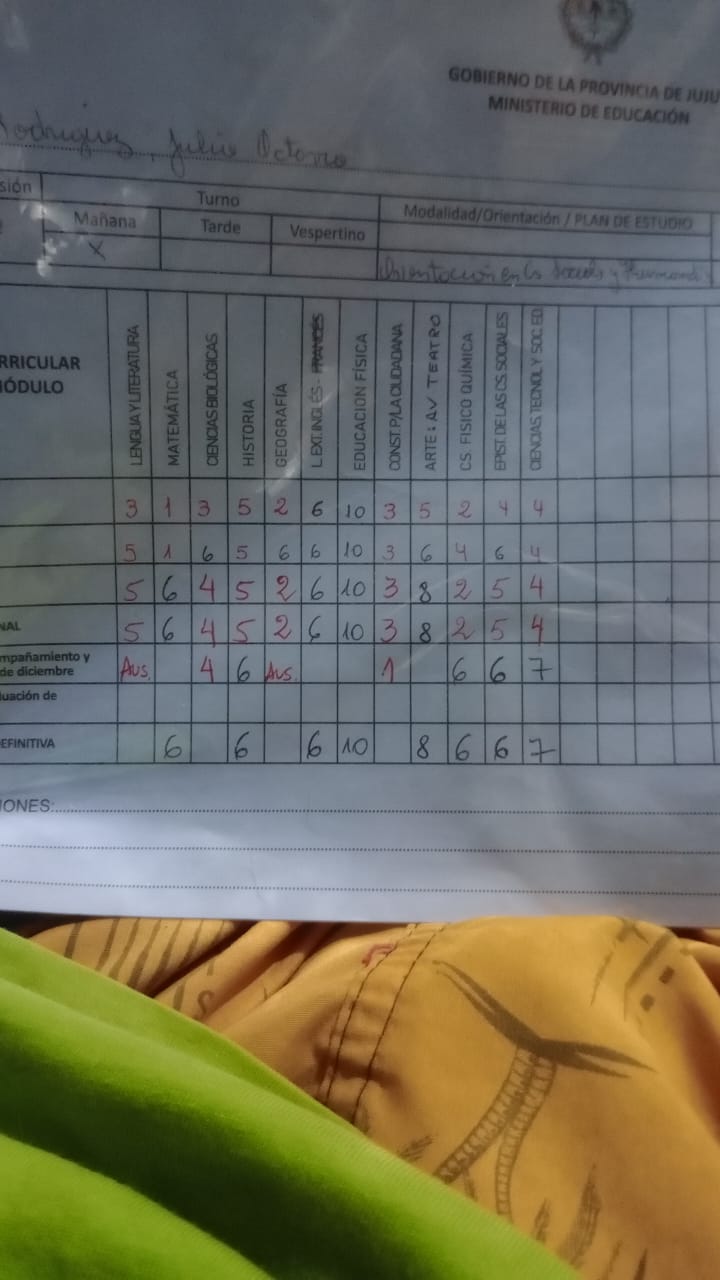 GOBIERNO DE LA PROVINCIA DE JUJU
MINISTERIO DE EDUCACIÓN
Rodriguez, Julio Octavio
sión Turno Modalidad/Orientación / PLAN DE ESTUDIO
Mañana Tarde Vespertino
X
Orientación en Cs Sociales y Humanid
RRICULAR
MÓDULO
LENGUA Y LITERATURA
MATEMÁTICA
CIENCIAS BIOLÓGICAS
HISTORIA
GEOGRAFÍA
L.EXT.INGLÉS - FRANCÉS
EDUCACION FÍSICA
CONST.P/LA CIUDADANA
ARTE: AV TEATRO
CS. FISICO QUÍMICA
EPIST.DE LAS CS.SOCIALES
CIENCIAS TECNOL Y SOC.ED
3 1 3 5 2 6 10 3 5 2 4 4
5 1 6 5 6 6 10 3 6 4 6 4
5 6 4 5 2 6 10 3 8 2 5 4
NAL 5 6 4 5 2 6 10 3 8 2 5 4
mpañamiento y
de diciembre Aus. 4 6 Aus. 1 6 6 7
luación de
EFINITIVA 6 6 6 10 8 6 6 7
IONES: